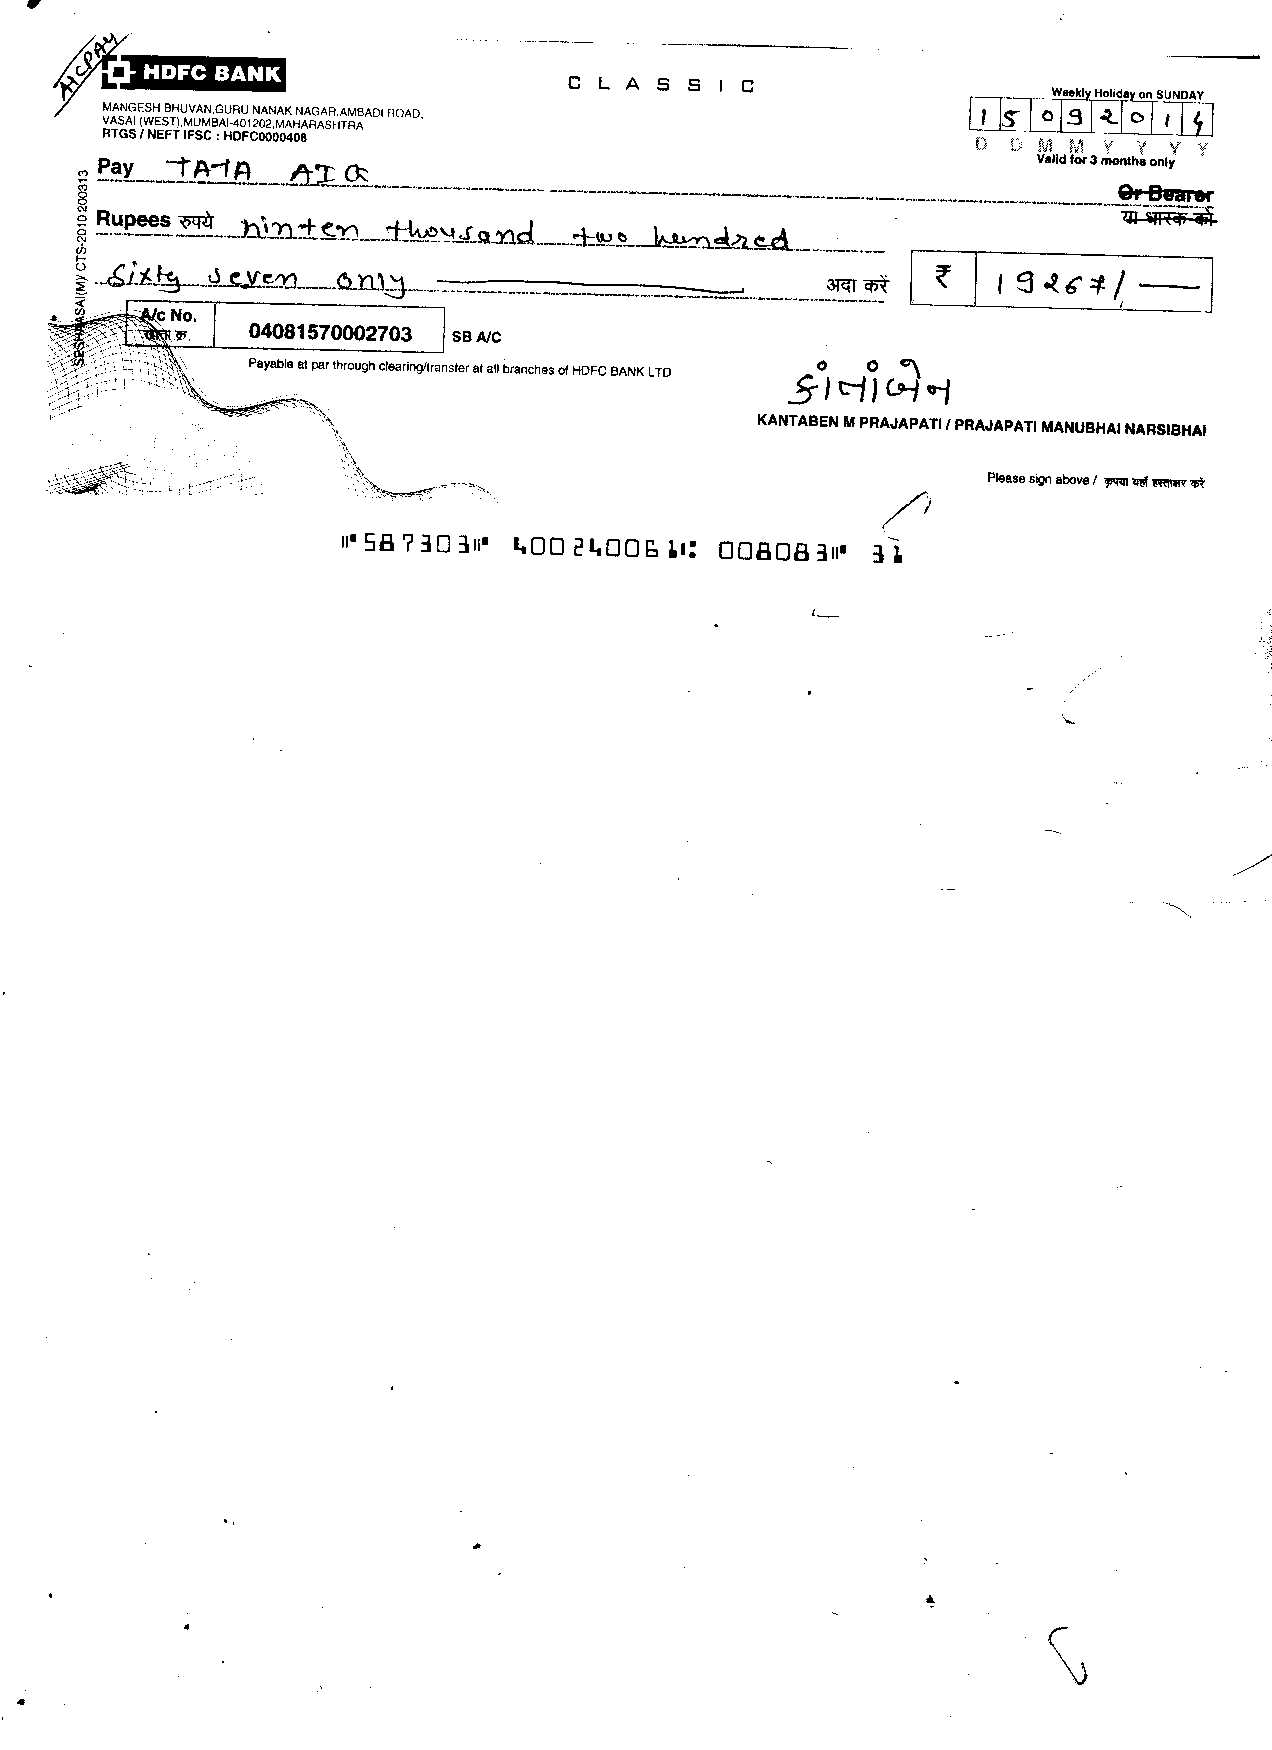 A/C PAY
HDFC BANK
CLASSIC
MANGESH BHUVAN,GURU NANAK NAGAR,AMBADI ROAD,
VASAI (WEST),MUMBAI-401202,MAHARASHTRA
RTGS / NEFT IFSC : HDFC0000408
Weekly Holiday on SUNDAY
15092014
D D M M Y Y Y Y
Valid for 3 months only
Pay TATA AIG
Or Bearer
या धारक को
Rupees रुपये ninten thousand two hundred
sixty seven only
अदा करें ₹ 19267/-
A/c No.
खाता क्र.
04081570002703 SB A/C
Payable at par through clearing/transfer at all branches of HDFC BANK LTD
કાંતાંબેન
KANTABEN M PRAJAPATI / PRAJAPATI MANUBHAI NARSIBHAI
Please sign above / कृपया यहाँ हस्ताक्षर करे
⑈587303⑈ 400240061⑆ 008083⑈ 31